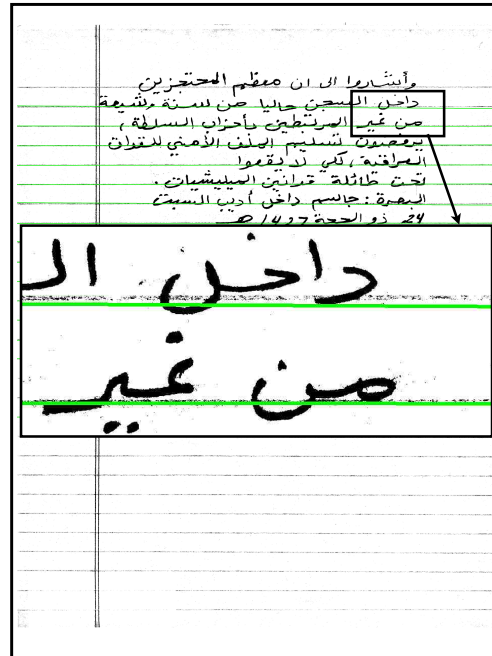 وأشاروا الى ان معظم المحتجزين
داخل السجن حاليا من لسنة وشيعة
من غير المرتبطين بأحزاب السلطة ،
يرفضون تسليم الملف الأمني للقوات
العراقية ، لكي لا يقعوا
تحت طائلة قوانين الميليشيات .
البصرة : جاسم داخل أديب السبت
24 ذو الحجة 1427 هـ
داخل ال
من غير